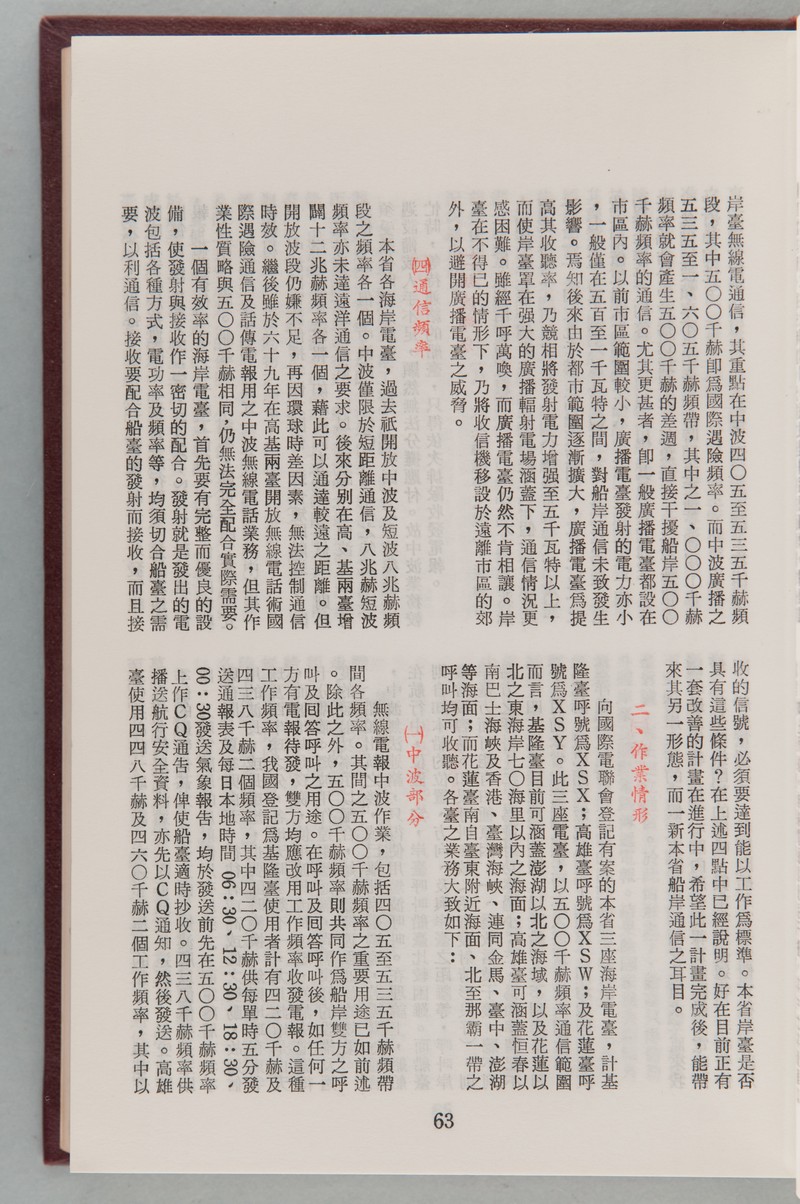 岸臺無線電通信，其重點在中波四〇五至五三五千赫頻
段，其中五〇〇千赫卽爲國際遇險頻率。而中波廣播之
五三五至一、六〇五千赫頻帶，其中之一、〇〇〇千赫
頻率就會產生五〇〇千赫的差週，直接干擾船岸五〇〇
千赫頻率的通信。尤其更甚者，卽一般廣播電臺都設在
市區內。以前市區範圍較小，廣播電臺發射的電力亦小
，一般僅在五百至一千瓦特之間，對船岸通信未致發生
影響。焉知後來由於都市範圍逐漸擴大，廣播電臺爲提
高其收聽率，乃競相將發射電力增强至五千瓦特以上，
而使岸臺罩在强大的廣播輻射電場涵蓋下，通信情況更
感困難。雖經千呼萬喚，而廣播電臺仍然不肯相讓。岸
臺在不得已的情形下，乃將收信機移設於遠離市區的郊
外，以避開廣播電臺之威脅。
㈣通信頻率
本省各海岸電臺，過去祗開放中波及短波八兆赫頻
段之頻率各一個。中波僅限於短距離通信，八兆赫短波
頻率亦未達遠洋通信之要求。後來分別在高、基兩臺增
闢十二兆赫頻率各一個，藉此可以通達較遠之距離。但
開放波段仍嫌不足，再因環球時差因素，無法控制通信
時效。繼後雖於六十九年在高基兩臺開放無線電話術國
際遇險通信及話傳電報用之中波無線電話業務，但其作
業性質略與五〇〇千赫相同，仍無法完全配合實際需要。
一個有效率的海岸電臺，首先要有完整而優良的設
備，使發射與接收作一密切的配合。發射就是發出的電
波包括各種方式，電功率及頻率等，均須切合船臺之需
要，以利通信。接收要配合船臺的發射而接收，而且接
收的信號，必須要達到能以工作爲標準。本省岸臺是否
具有這些條件？在上述四點中已經說明。好在目前正有
一套改善的計畫在進行中，希望此一計畫完成後，能帶
來其另一形態，而一新本省船岸通信之耳目。
二、作業情形
向國際電聯會登記有案的本省三座海岸電臺，計基
隆臺呼號爲XSX；高雄臺呼號爲XSW；及花蓮臺呼
號爲XSY。此三座電臺，以五〇〇千赫頻率通信範圍
而言，基隆臺目前可涵蓋澎湖以北之海域，以及花蓮以
北之東海岸七〇海里以內之海面；高雄臺可涵蓋恒春以
南巴士海峽及香港、臺灣海峽、連同金馬、臺中、澎湖
等海面；而花蓮臺南自臺東附近海面、北至那霸一帶之
呼叫均可收聽。各臺之業務大致如下：
㈠中波部分
無線電報中波作業，包括四〇五至五三五千赫頻帶
間各頻率。其間之五〇〇千赫頻率之重要用途已如前述
。除此之外，五〇〇千赫頻率則共同作爲船岸雙方之呼
叫及回答呼叫之用途。在呼叫及回答呼叫後，如任何一
方有電報待發，雙方均應改用工作頻率收發電報。這種
工作頻率，我國登記爲基隆臺使用者計有四二〇千赫及
四三八千赫二個頻率，其中四二〇千赫供每單時五分發
送通報表及每日本地時間 06:30、12:30、18:30、
00:30發送氣象報告，均於發送前先在五〇〇千赫頻率
上作CQ通告，俾使船臺適時抄收。四三八千赫頻率供
播送航行安全資料，亦先以CQ通知，然後發送。高雄
臺使用四四八千赫及四六〇千赫二個工作頻率，其中以
63